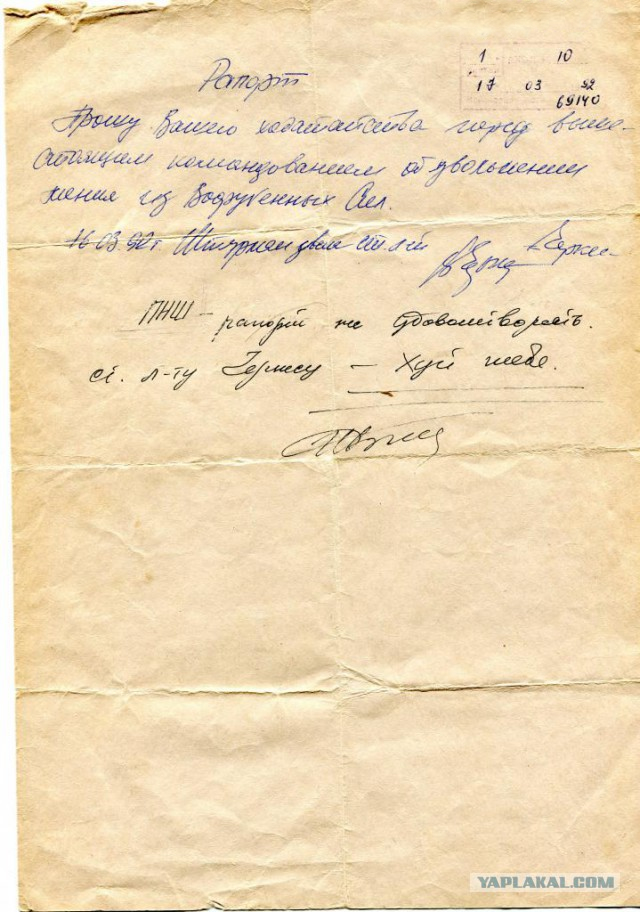 1 10
17 03 92
69140
Рапорт
Прошу Вашего ходатайства перед выше-
стоящим командованием об увольнении
меня из Вооруженных Сил.
16.03.92 г. Штурман звена ст. л-т
ПНШ – рапорт не удовольтворять.
ст. л-ту – Хуй тебе.
YAPLAKAL.COM